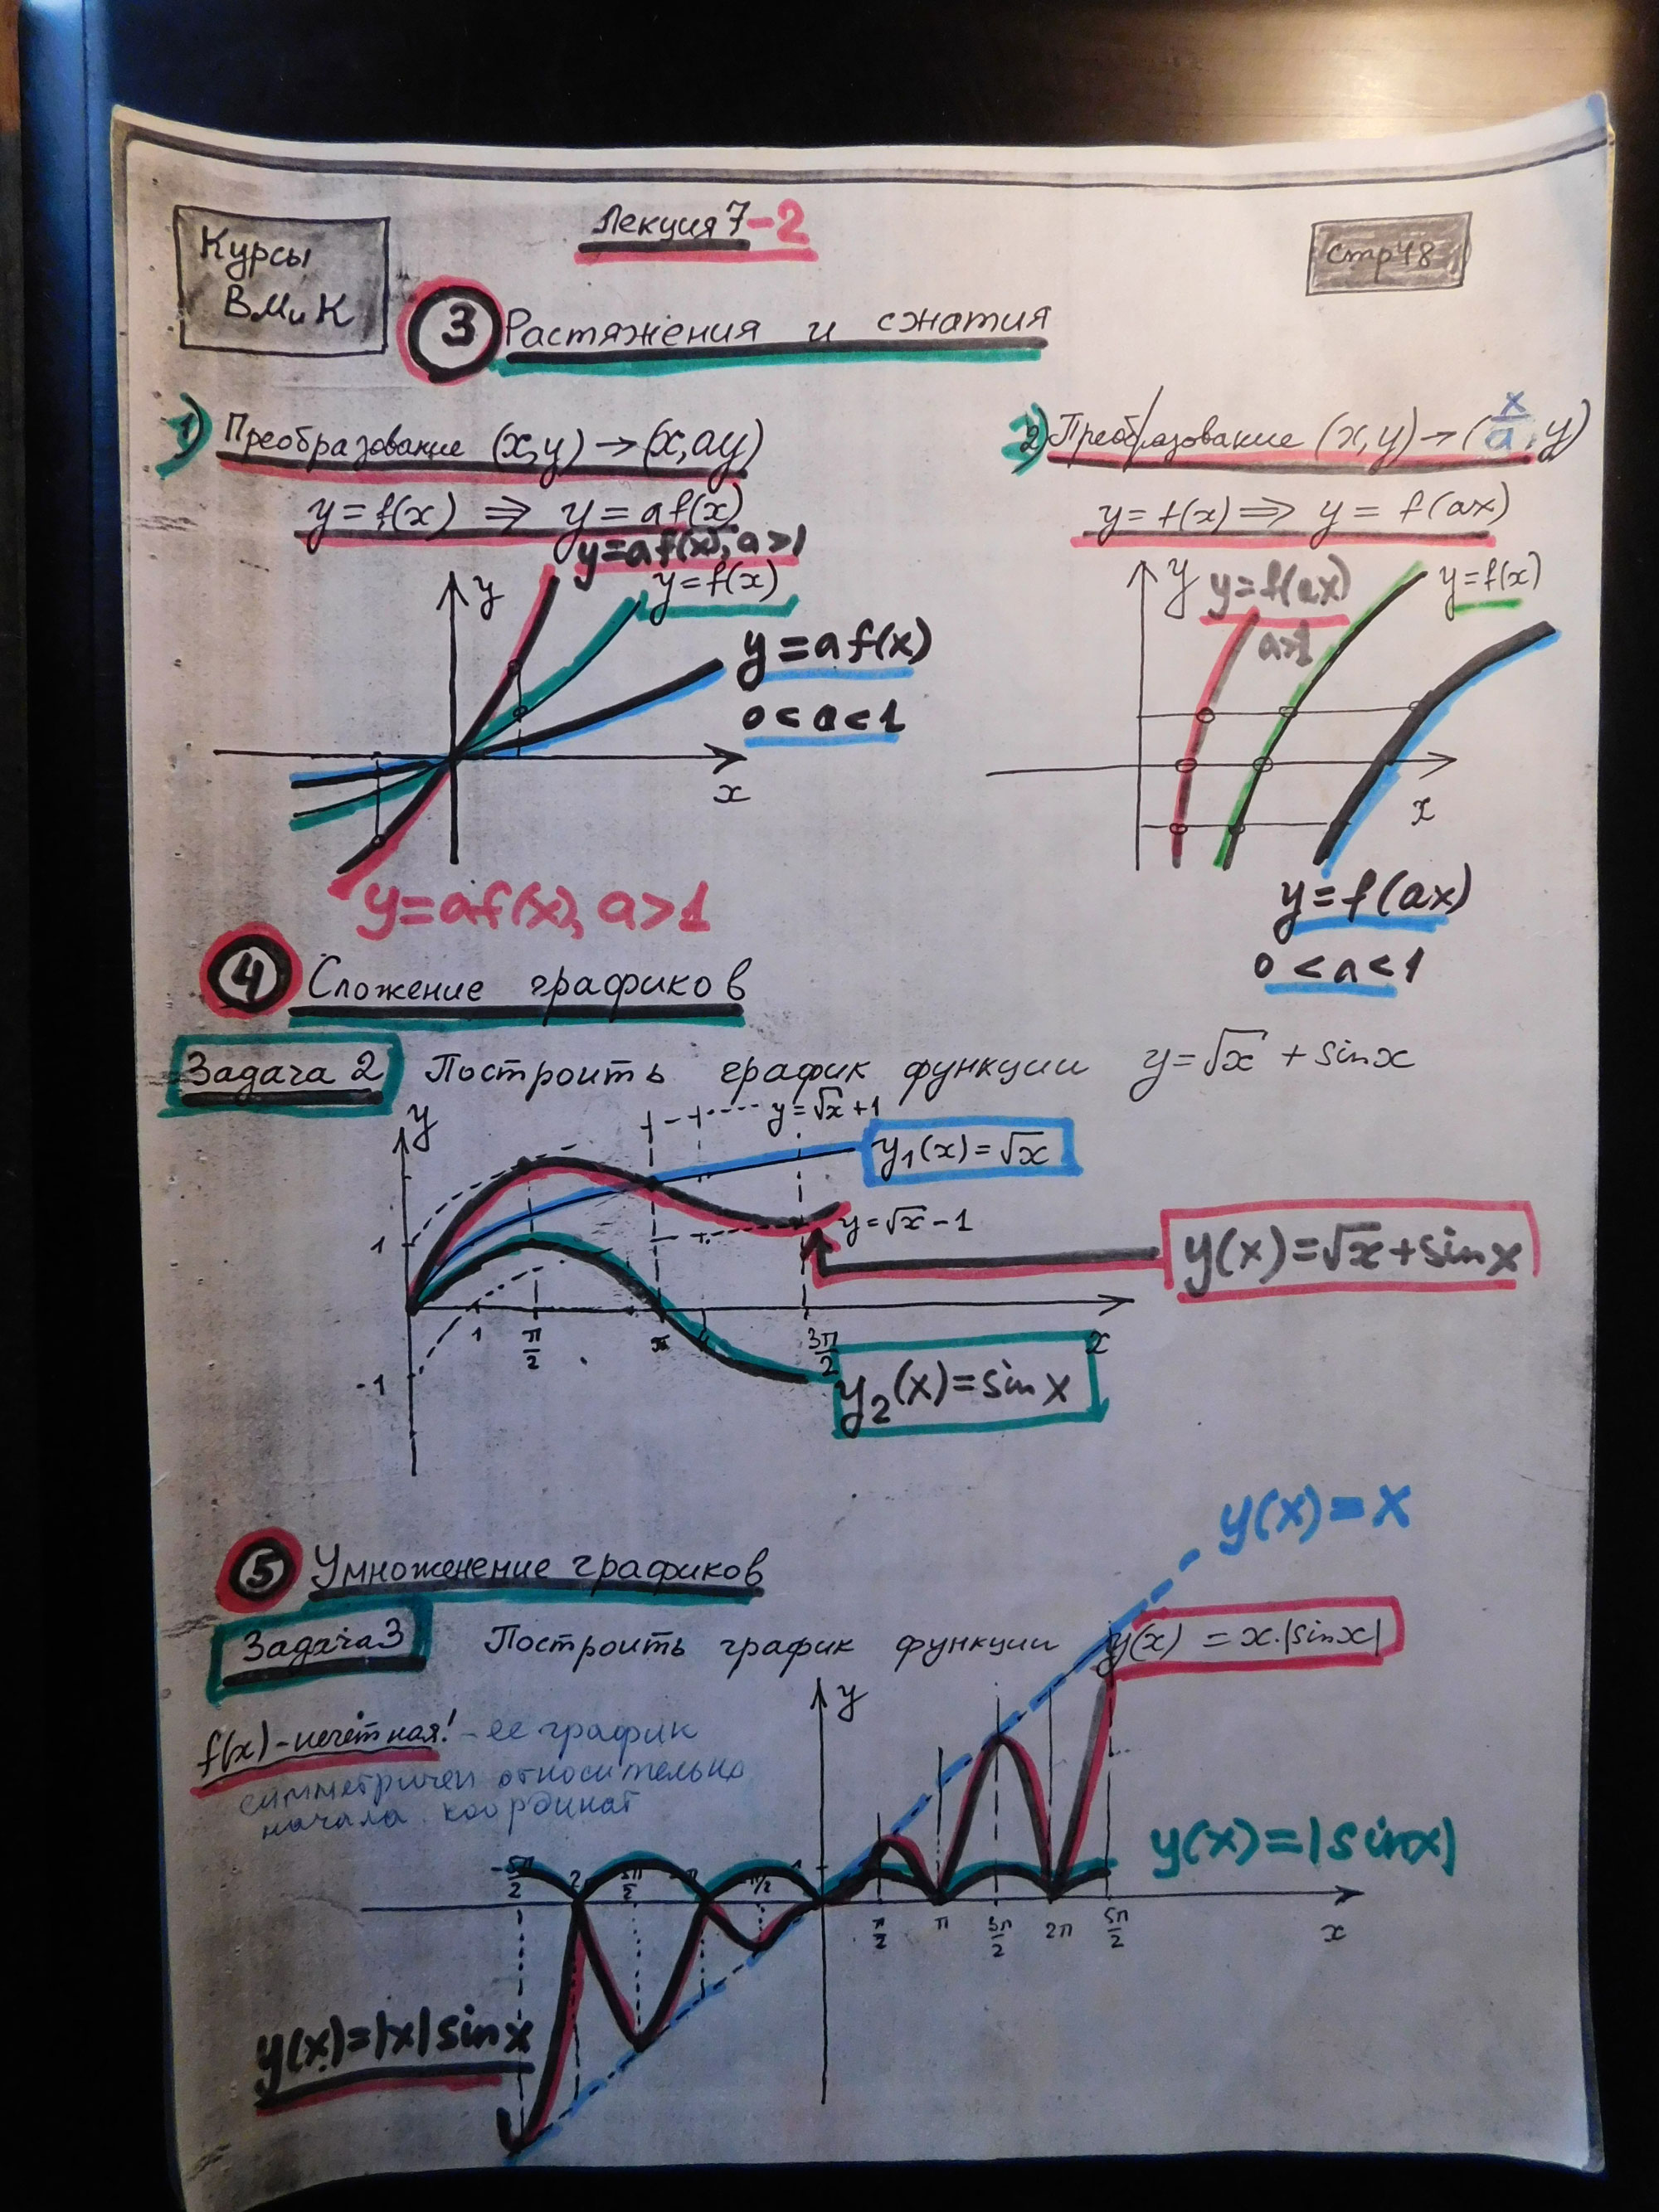 Лекция 7-2
Курсы
ВМиК
Стр 48
3 Растяжения и сжатия
1) Преобразование (x,y)→(x,ay)
y=f(x) ⇒ y=af(x)
y=af(x), a>1
y=f(x)
y=af(x)
0<a<1
y
x
y=af(x), a>1
2) Преобразование (x,y)→(x/a,y)
y=f(x)⇒ y=f(ax)
y
y=f(ax)
a>1
y=f(x)
x
y=f(ax)
0<a<1
4 Сложение графиков
Задача 2 Построить график функции y=√x + sinx
y
y=√x+1
y₁(x)=√x
y=√x-1
y(x)=√x+sinx
1
1
π/2
π
3π/2
x
-1
y₂(x)=sinx
5 Умноженение графиков
y(x)=x
Задача 3 Построить график функции y(x)=x·|sinx|
f(x)-нечётная! - ее график
симметричен относительно
начала координат
y
y(x)=|sinx|
-5π/2
1
π/2
π
3π/2
2π
5π/2
x
y(x)=|x|sinx